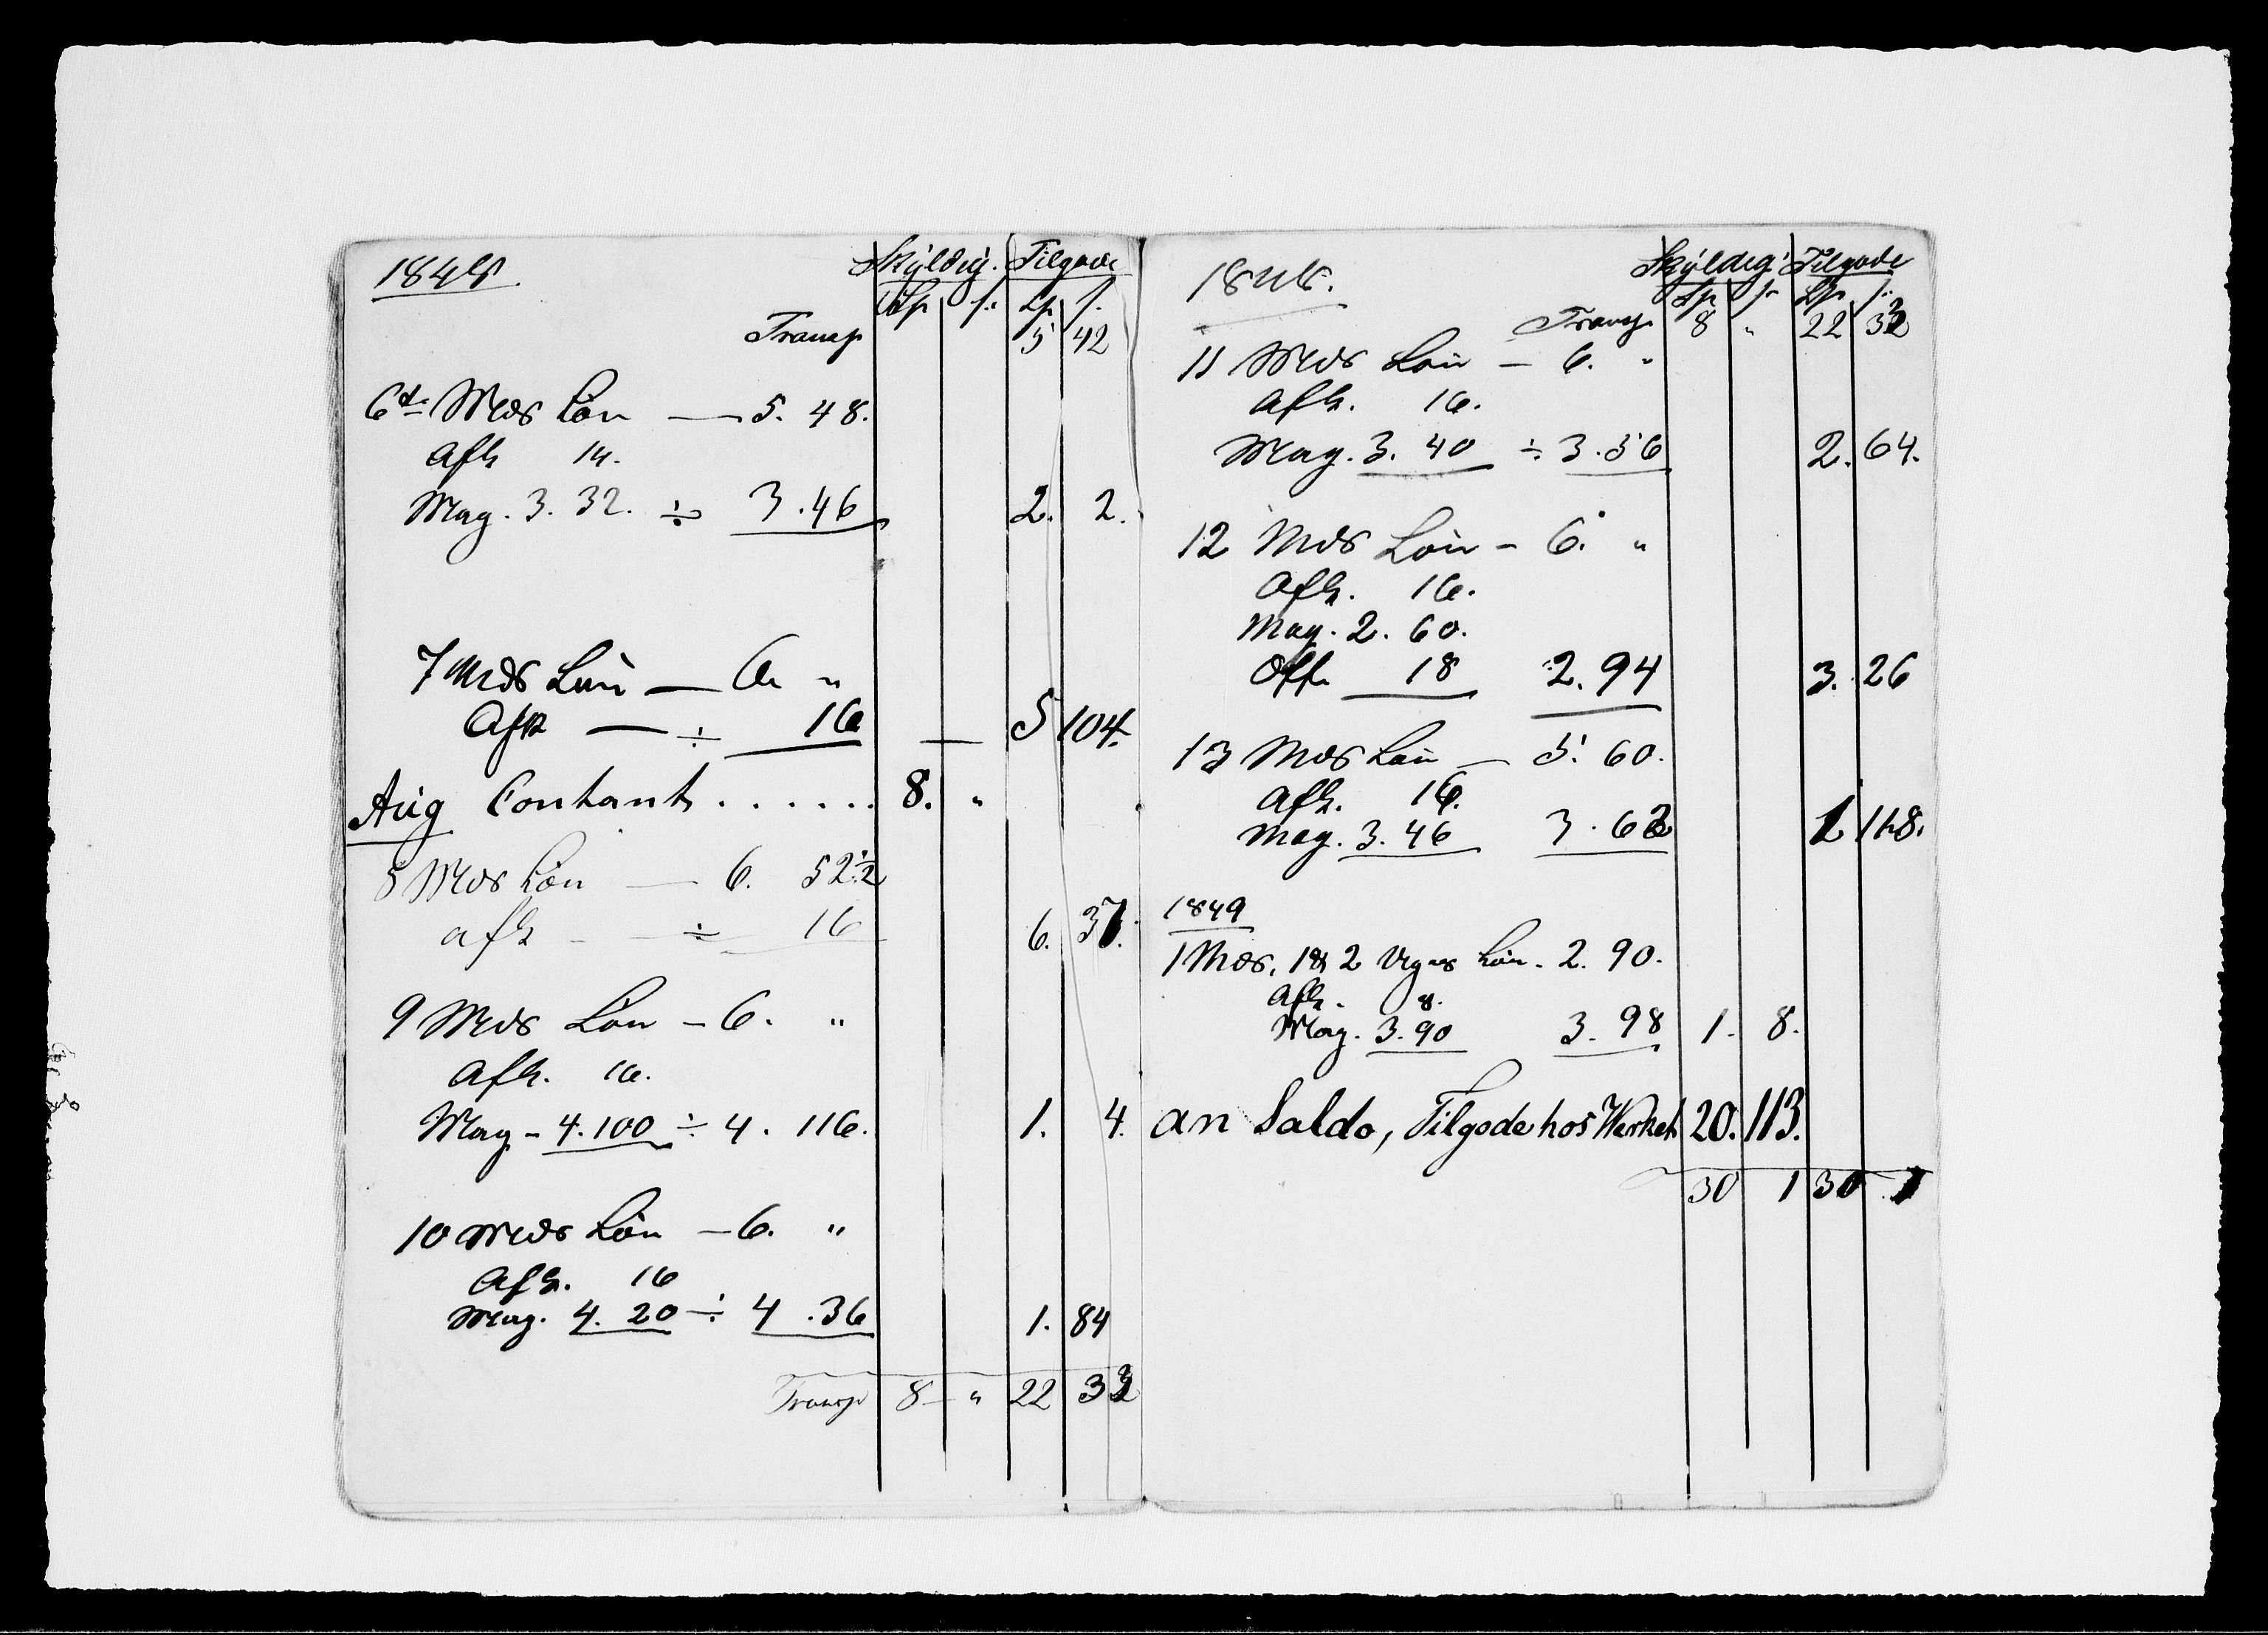 1848. Skyldig. Tilgode
Sp ſ. Sp ſ.
Transp 5 42
6te Mds Lön — 5. 48.
Afk 14.
Mag. 3. 32. ÷ 3. 46 2. 2.
7 Mds Lön — 6. "
Afk — ÷ 16 — 5 104.
Aug Contant . . . . . . 8. "
8 Mds Lön — 6. 52½
afk — ÷ 16 6. 37.
9 Mds Lön — 6. "
Afk. 16.
Mag - 4. 100 ÷ 4. 116. 1. 4.
10 Mds Lön — 6. "
Afk. 16
Mag. 4. 20 ÷ 4. 36 1. 84
Transp 8 " 22 33
1848. Skyldig. Tilgode
Sp ſ Sp ſ.
Transp 8 " 22 33
11 Mds Lön — 6. "
Afk. 16.
Mag. 3. 40 ÷ 3. 56 2. 64.
12 Mds Lön — 6. "
Afk. 16.
Mag. 2. 60.
Off. 18 2. 94 3. 26
13 Mds Lön — 5. 60.
Afk. 16.
Mag. 3. 46 3. 62 1 118.
1849
1 Mds, 1 & 2 Ugers Lön. 2. 90.
Afk. 8.
Mag. 3. 90 3. 98 1. 8.
an Saldo, Tilgode hos Werket 20. 113.
30 1 30 1